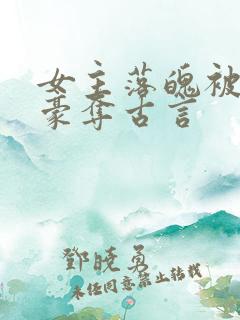 女主落魄被
豪夺古言
鄧曉勇
未经同意禁止转载